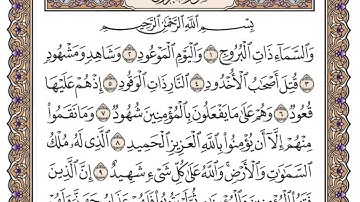 بِسْمِ ٱللَّهِ ٱلرَّحْمَٰنِ ٱلرَّحِيمِ
وَٱلسَّمَآءِ ذَاتِ ٱلْبُرُوجِ ١ وَٱلْيَوْمِ ٱلْمَوْعُودِ ٢ وَشَاهِدٍ وَمَشْهُودٍ
٣ قُتِلَ أَصْحَٰبُ ٱلْأُخْدُودِ ٤ ٱلنَّارِ ذَاتِ ٱلْوَقُودِ ٥ إِذْ هُمْ عَلَيْهَا
قُعُودٌ ٦ وَهُمْ عَلَىٰ مَا يَفْعَلُونَ بِٱلْمُؤْمِنِينَ شُهُودٌ ٧ وَمَا نَقَمُوا۟
مِنْهُمْ إِلَّآ أَن يُؤْمِنُوا۟ بِٱللَّهِ ٱلْعَزِيزِ ٱلْحَمِيدِ ٨ ٱلَّذِى لَهُۥ مُلْكُ
ٱلسَّمَٰوَٰتِ وَٱلْأَرْضِ وَٱللَّهُ عَلَىٰ كُلِّ شَىْءٍ شَهِيدٌ ٩ إِنَّ ٱلَّذِينَ